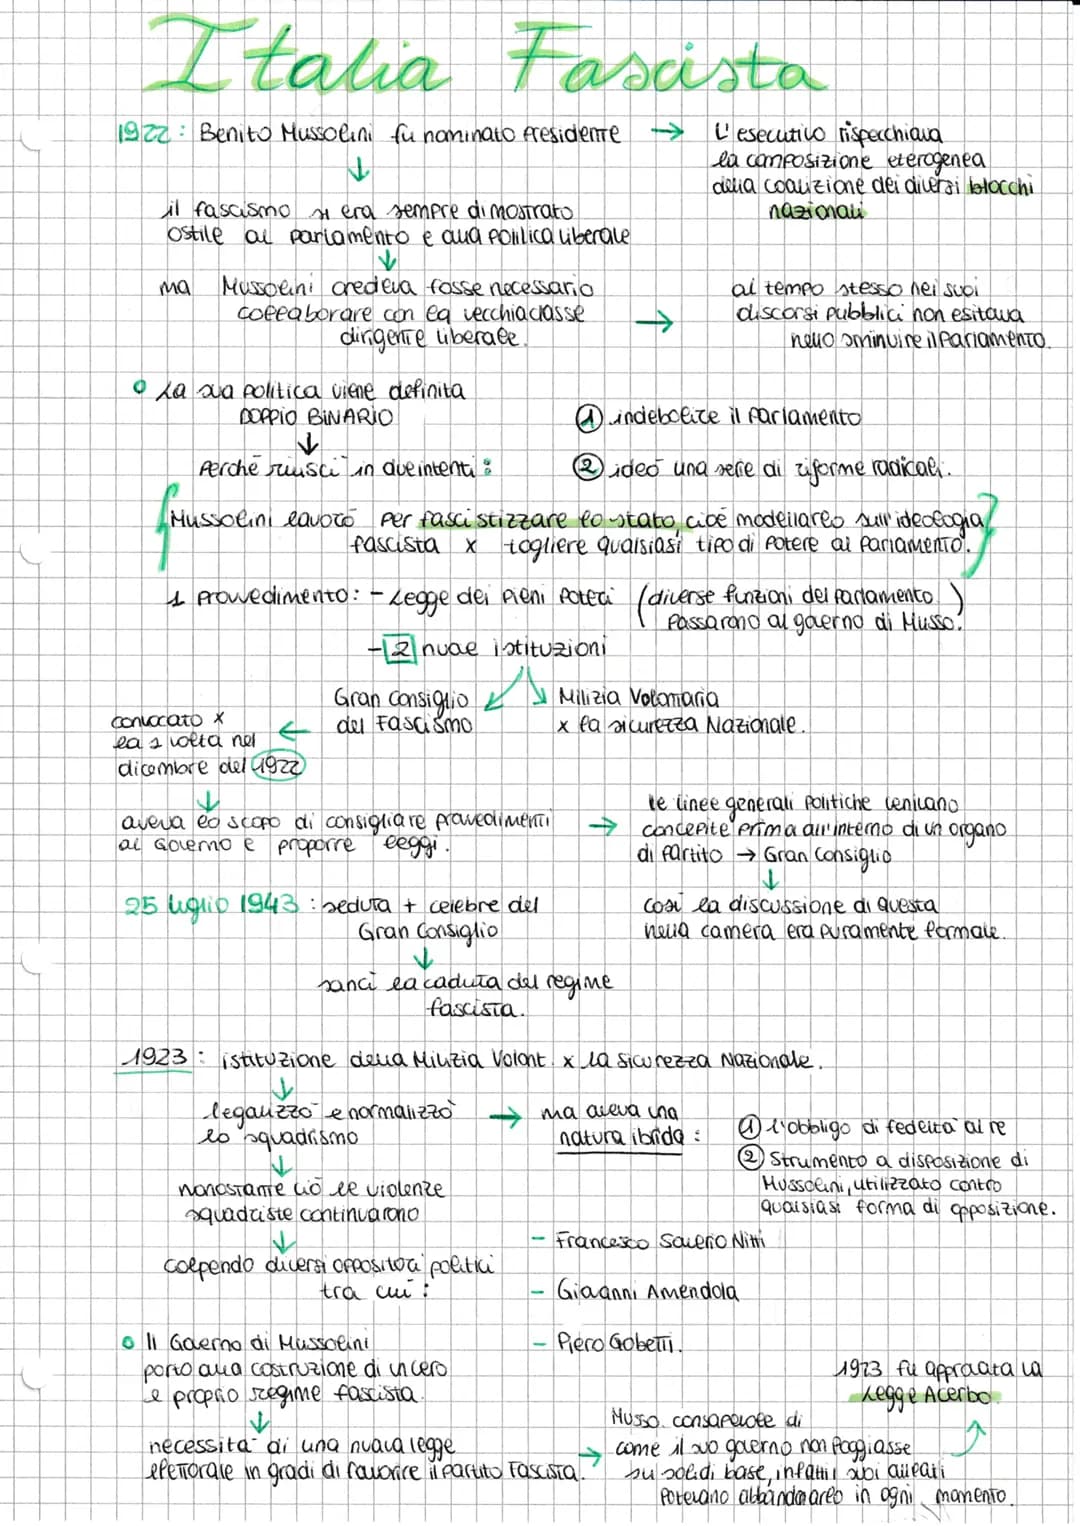 Italia Fascista
1922: Benito Mussolini fu nominato Presidente →
L'esecutivo rispecchiava
la composizione eterogenea
della coalizione dei diversi blocchi
nazionali
↓
il fascismo si era sempre dimostrato
ostile al parlamento e alla politica liberale
↓
ma Mussolini credeva fosse necessario
collaborare con la vecchia classe
dirigente liberale.
→
al tempo stesso nei suoi
discorsi pubblici non esitava
nello sminuire il Parlamento.
La sua politica viene definita
DOPPIO BINARIO
↓
Perché riuscì in due intenti:
① indebolire il Parlamento
② ideò una serie di riforme radicali.
{Mussolini lavorò per fascistizzare lo stato, cioè modellarlo sull'ideologia
fascista x togliere qualsiasi tipo di potere al Parlamento.}
1 Provvedimento: - Legge dei Pieni Poteri (diverse funzioni del parlamento
passarono al governo di Musso.)
- 2 nuove istituzioni
Gran Consiglio
del Fascismo
Milizia Volontaria
x la sicurezza Nazionale.
convocato x
la 1 volta nel
dicembre del 1922
↓
aveva lo scopo di consigliare provvedimenti
al Governo e proporre leggi.
→
le linee generali politiche venivano
concepite prima all'interno di un organo
di Partito → Gran Consiglio
↓
così la discussione di questa
nella camera era puramente formale.
25 luglio 1943: seduta + celebre del
Gran Consiglio
↓
sancì la caduta del regime
fascista.
1923: istituzione della Milizia Volont. x la sicurezza Nazionale.
↓
legalizzò e normalizzò
lo squadrismo
→
ma aveva una
natura ibrida:
① l'obbligo di fedeltà al re
② Strumento a disposizione di
Mussolini, utilizzato contro
qualsiasi forma di opposizione.
↓
nonostante ciò le violenze
squadriste continuarono
↓
colpendo diversi oppositori politici
tra cui:
- Francesco Saverio Nitti
- Giovanni Amendola
- Piero Gobetti.
Il Governo di Mussolini
portò alla costruzione di un vero
e proprio regime fascista.
↓
necessità di una nuova legge
elettorale in gradi di favorire il partito Fascista.
→
Musso. consapevole di
come il suo governo non poggiasse
su solidi base, infatti i suoi alleati
potevano abbandonarlo in ogni momento.
1923 fu approvata la
Legge Acerbo.